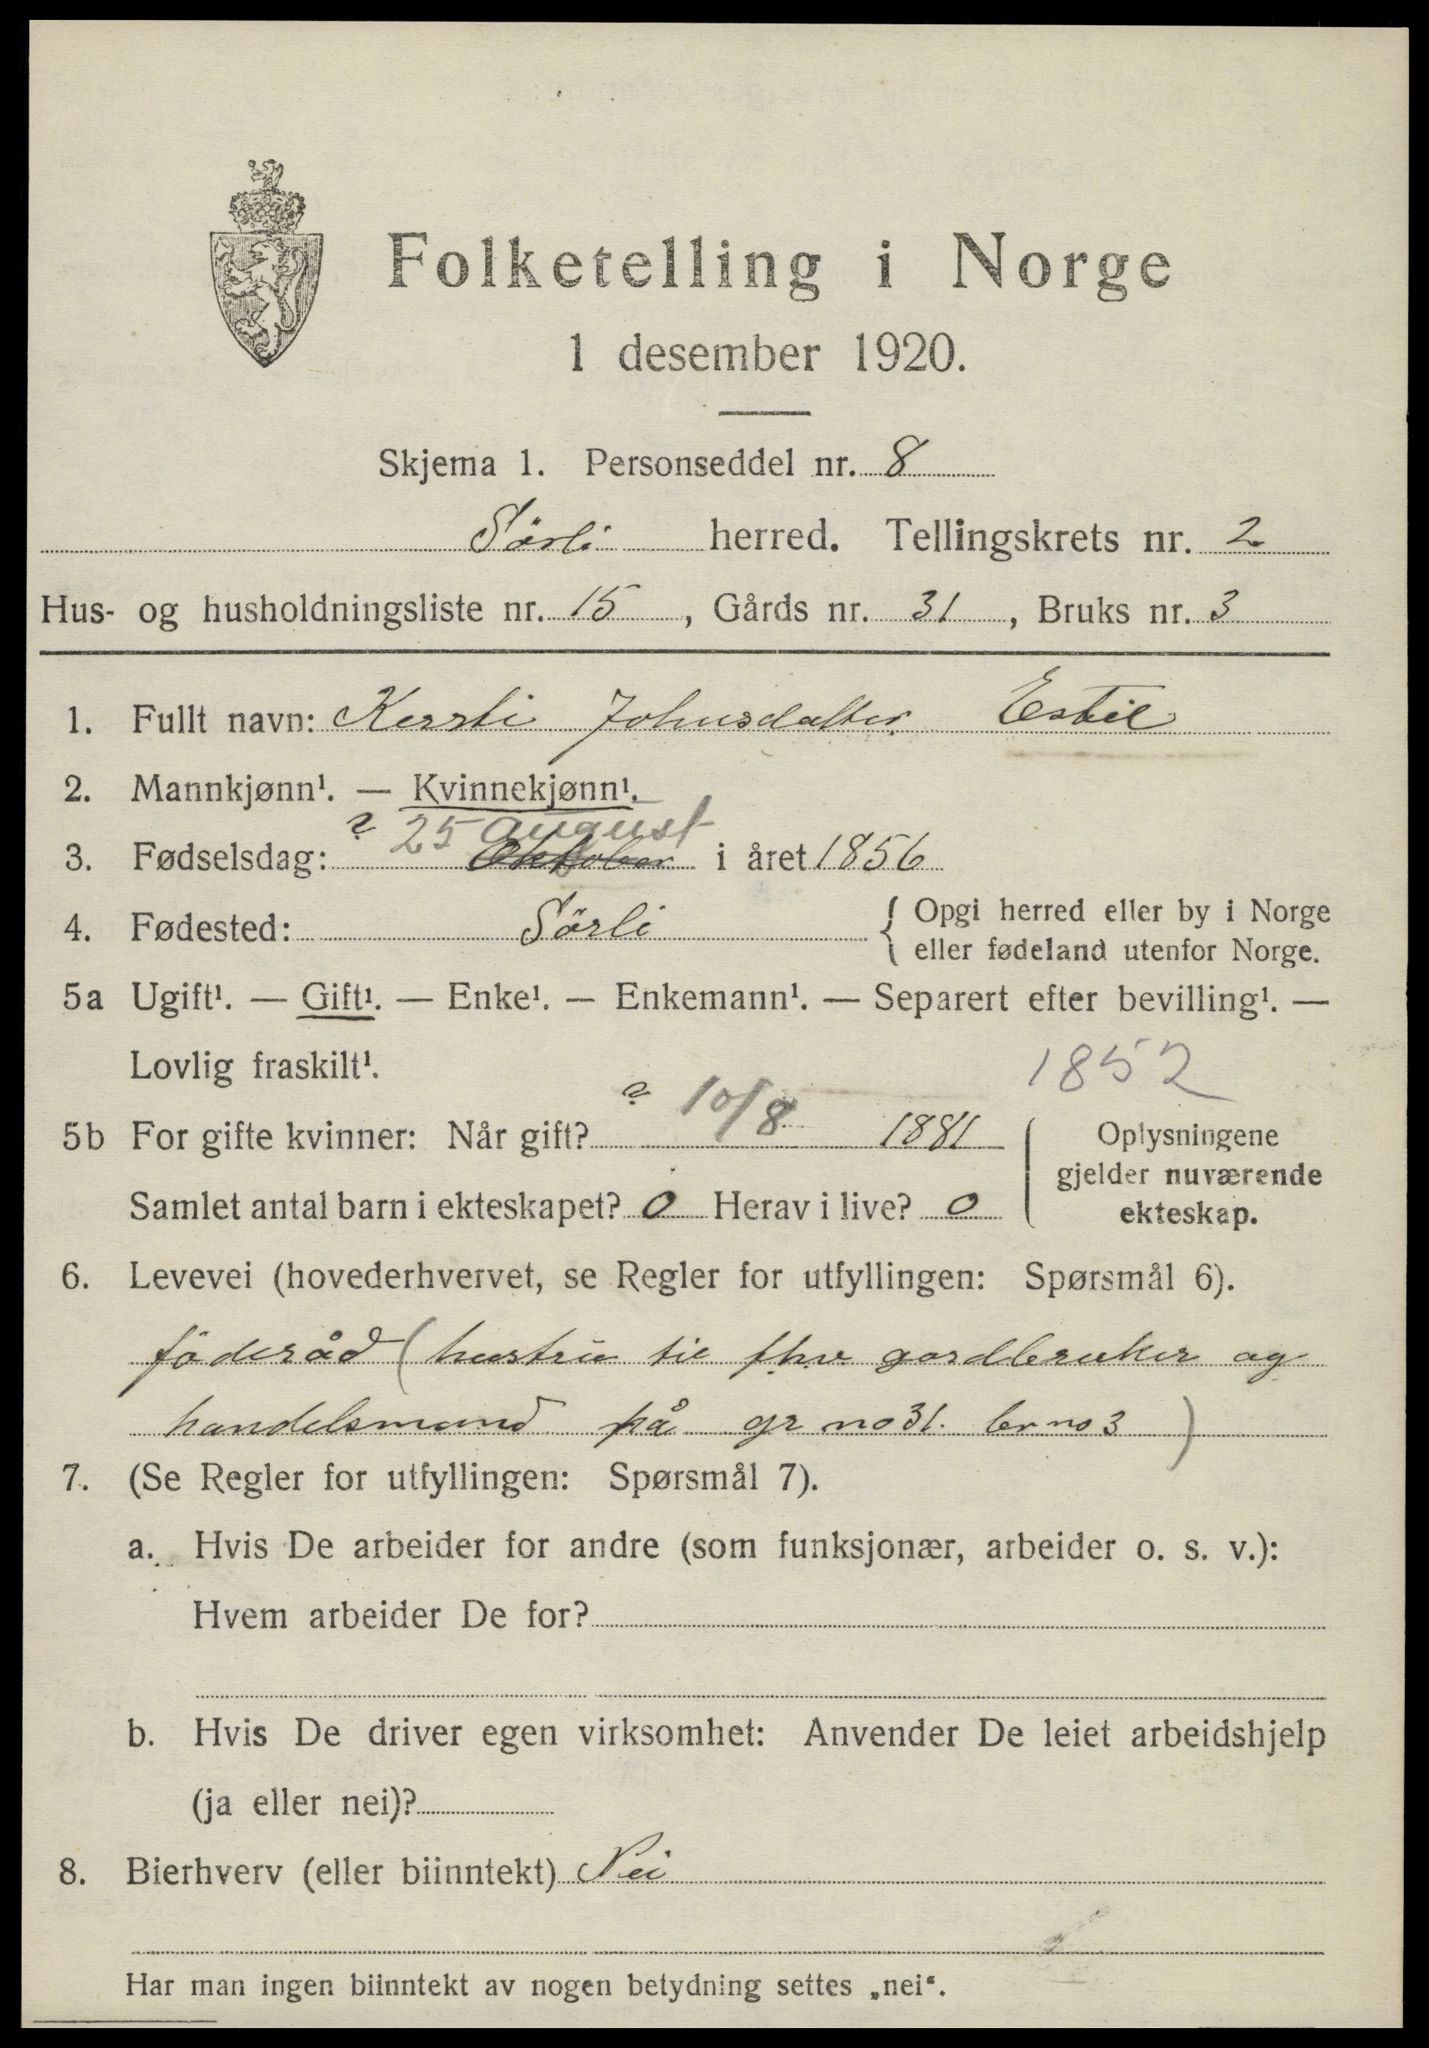 Folketelling i Norge
1 desember 1920.
Skjema 1. Personseddel nr. 8
Sörli herred. Tellingskrets nr. 2
Hus- og husholdningsliste nr. 15, Gårds nr. 31, Bruks nr. 3
1. Fullt navn: Kersti Johnsdatter Estil
2. Mannkjønn¹. — Kvinnekjønn¹.
? 25 august
3. Fødselsdag: Oktober i året 1856
4. Fødested: Sörli { Opgi herred eller by i Norge
eller fødeland utenfor Norge.
5a Ugift¹. — Gift¹. — Enke¹. — Enkemann¹. — Separert efter bevilling¹. —
Lovlig fraskilt¹. 1852
5b For gifte kvinner: Når gift? ? 10/8 1881
Samlet antal barn i ekteskapet? 0 Herav i live? 0
Oplysningene
gjelder nuværende
ekteskap.
6. Levevei (hovederhvervet, se Regler for utfyllingen: Spørsmål 6).
föderåd (hustru til fhv gardbruker og
handelsmand på gr no 31. br no 3)
7. (Se Regler for utfyllingen: Spørsmål 7).
a. Hvis De arbeider for andre (som funksjonær, arbeider o. s. v.):
Hvem arbeider De for?
b. Hvis De driver egen virksomhet: Anvender De leiet arbeidshjelp
(ja eller nei)?
8. Bierhverv (eller biinntekt) Nei
Har man ingen biinntekt av nogen betydning settes „nei“.